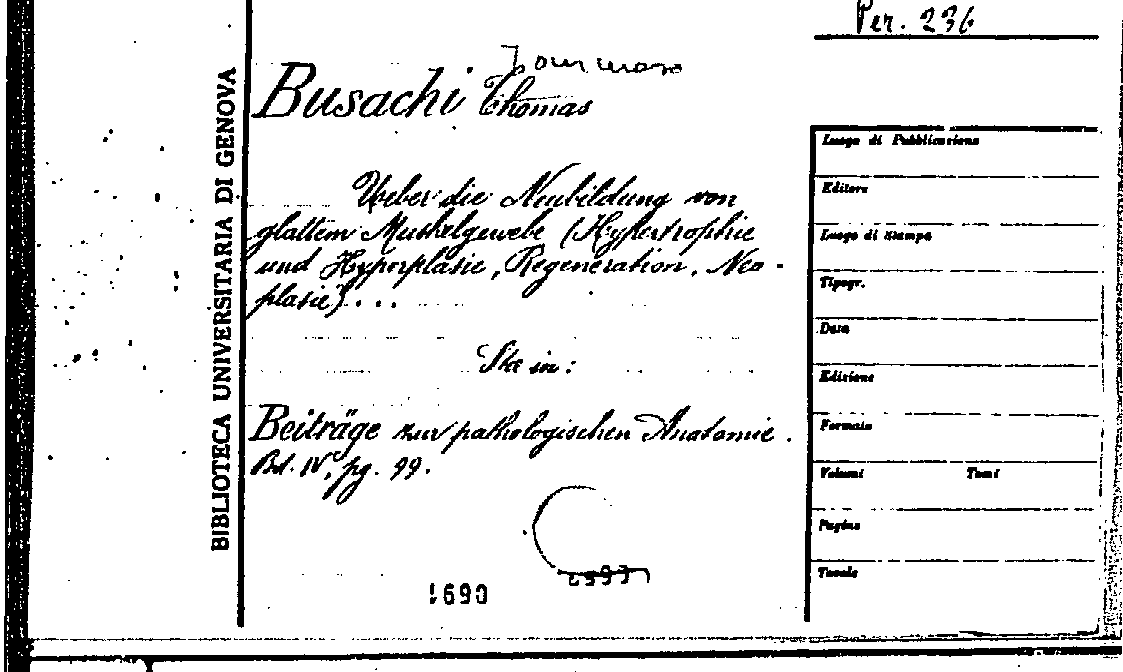 Per. 236
Tommaso
Busachi Thomas
BIBLIOTECA UNIVERSITARIA DI GENOVA
Ueber die Neubildung von
glattem Muskelgewebe (Hypertrophie
und Hyperplasie, Regeneration, Neo-
plasie)...
Sta in:
Beiträge zur pathologischen Anatomie.
Bd. IV, pg. 99.
1690
Luogo di Pubblicazione
Editore
Luogo di Stampa
Tipogr.
Data
Edizione
Formato
Volumi Tomi
Pagine
Tavole